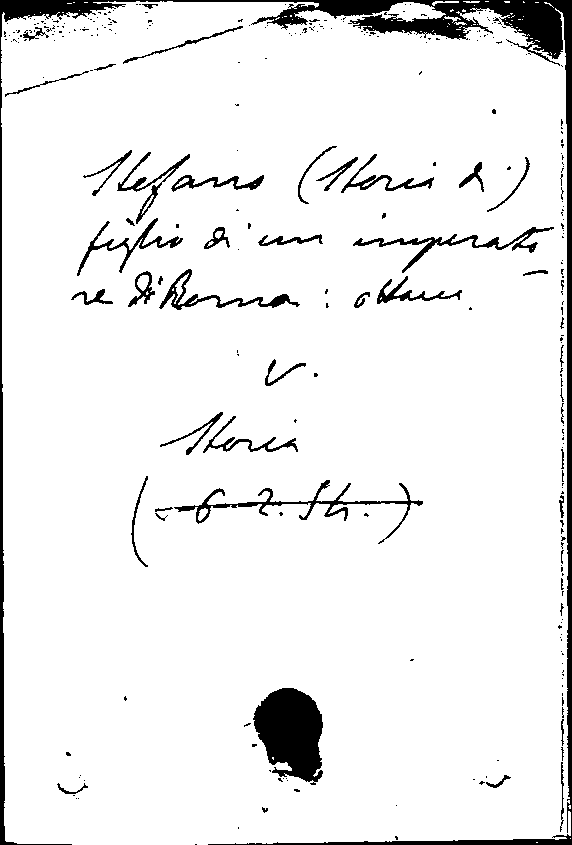 Stefano (Storia di)
figlio di un imperato
re di Roma: ottave.
V.
Storia